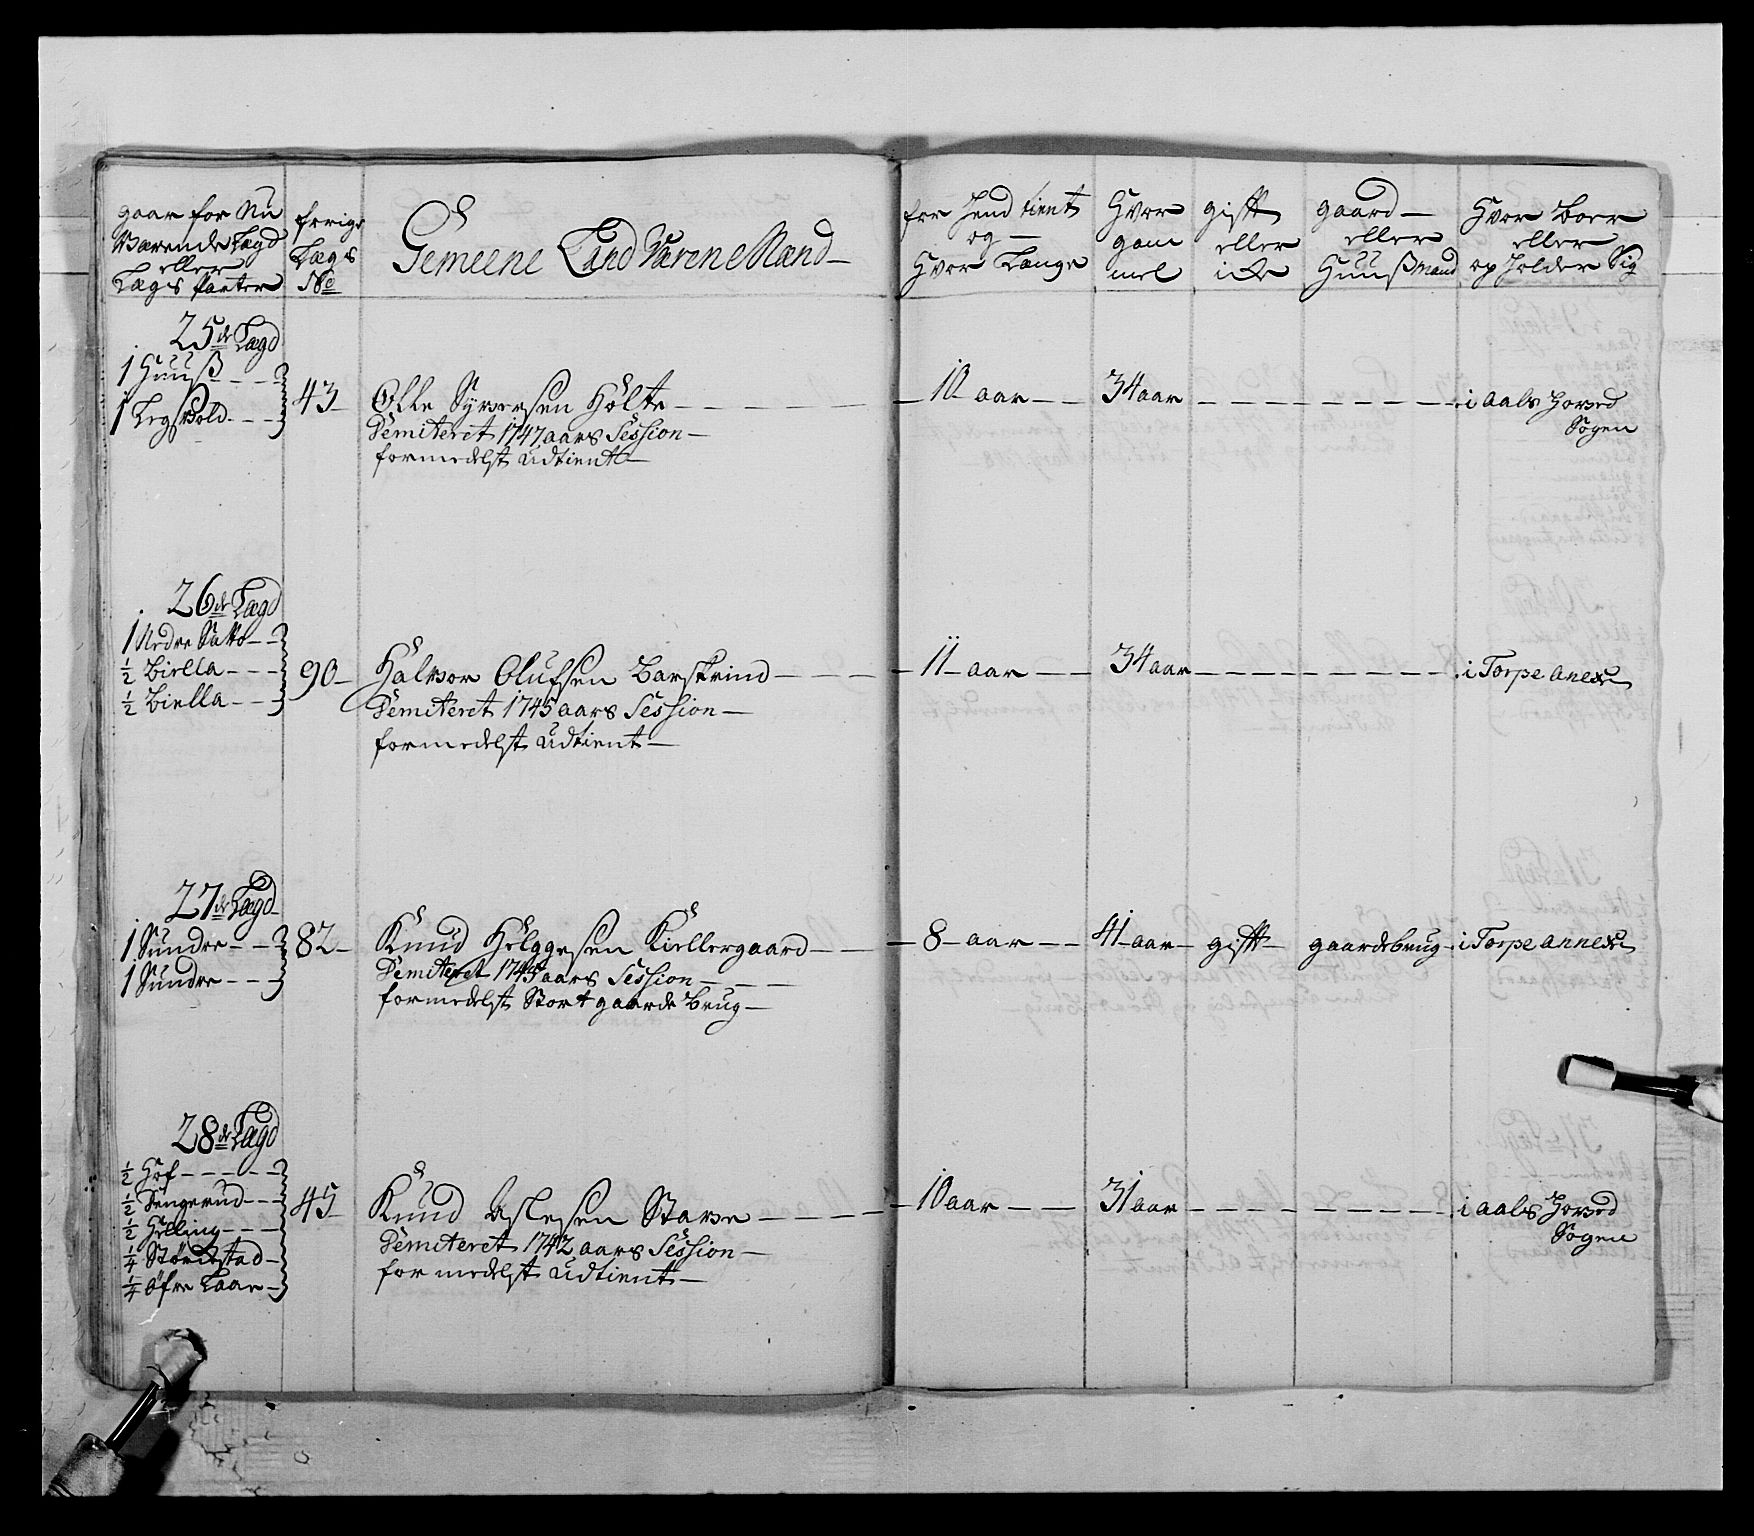 gaar for Nu
Værende Lægd
eller
Lægs Parter
forrige
Lægs
No
Gemeene Land Værn Mand
før hend tient
og
Hvor Længe
Hvor
gam
mel
gifft
eller
icke
gaard
eller
Huusmand
Hvor Boer
eller
opholder Sig
25de Lægd
1 Huus
1 Legsvold
43
Olle Syversen Holte
Demiteret 1747 aars Session
formedelst udtient
10 aar
34 aar
i aals Hoved
Sogen
26de Lægd
1 Nedre Satto
½ Biella
½ Biella
90
Halvor Olufsen Barskrind
Demiteret 1745 aars Session
formedelst udtient
11 aar
34 aar
i Torpe Anexe
27de Lægd
1 Sundre
1 Sundre
82
Knud Helggesen Kiellergaard
Demiteret 1745 aars Session
formedelst Stort gaarde Brug
8 aar
41 aar
gifft
gaardebrug
i Torpe Annexe
28de Lægd
½ Hof
½ Sengerud
½ Helling
¼
¼ Øfre Laae
45
Knud Aslesen Stave
Demiteret 1742 aars Session
formedelst udtient
10 aar
31 aar
i aals Hoved
Sogen